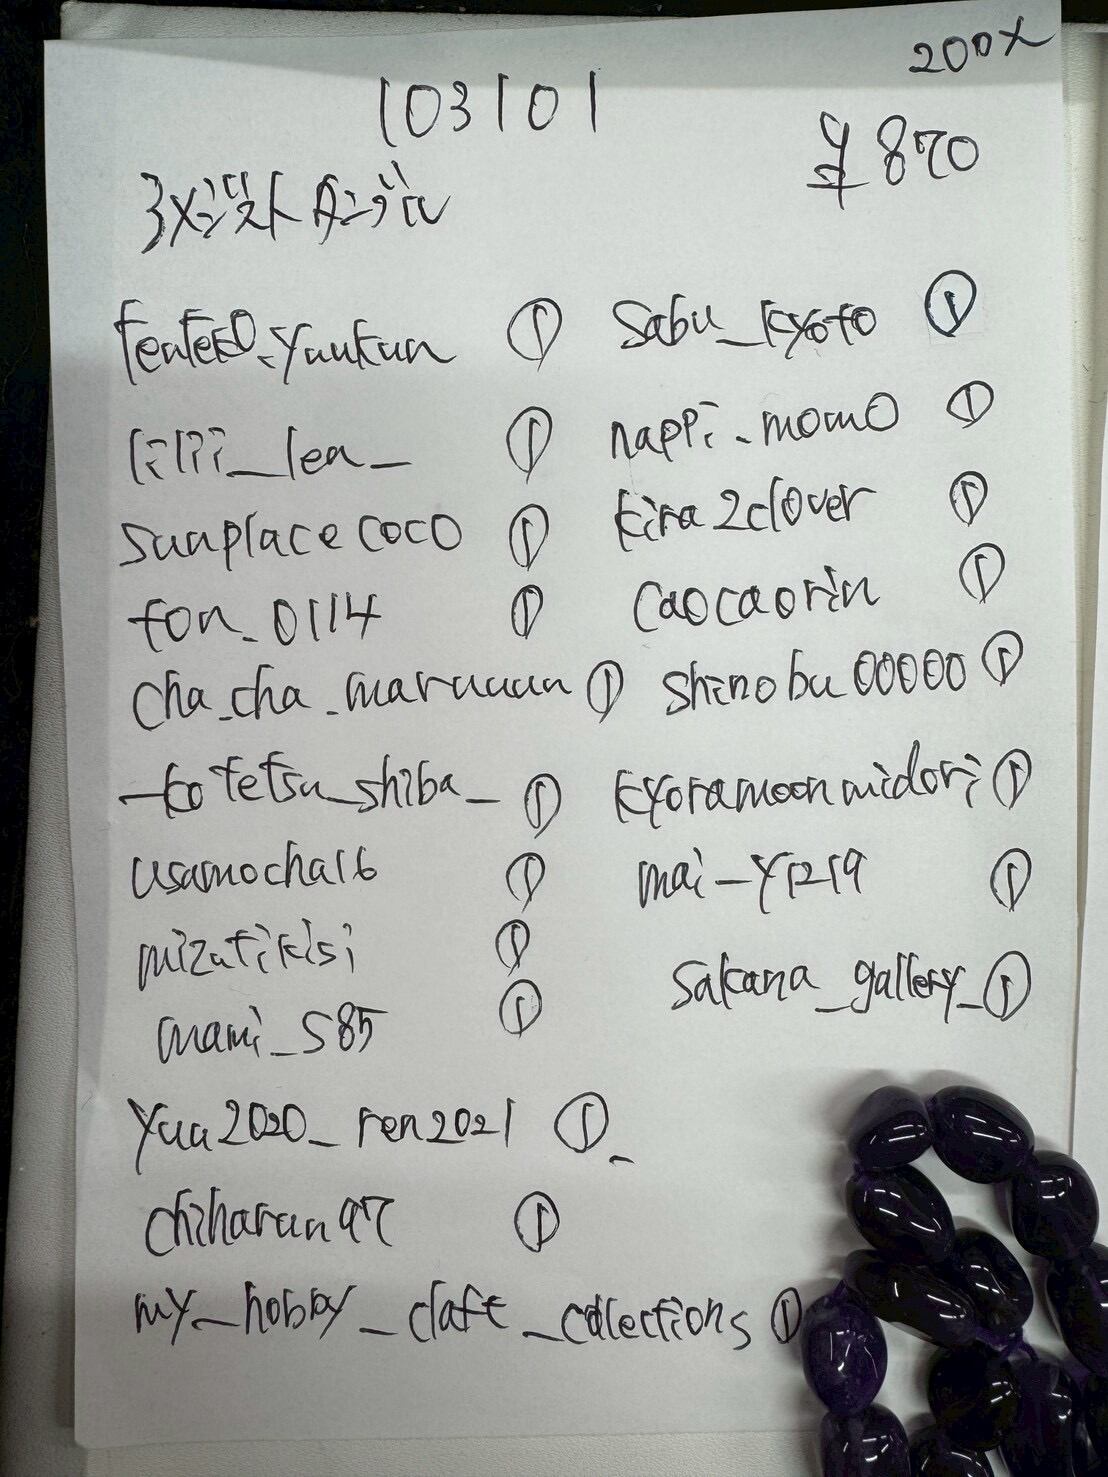 200x
103101
¥870
tenteko_yuukun ① sabu_kyoto ①
lilii_lea_ ① nappi_momo ①
sunplacecoco ① kira2clover ①
ton_0114 ① caocaorin ①
cha_cha_maruuun ① shinobu00000 ①
_kotetsu_shiba_ ① kyoramoonmidori ①
usamocha16 ① mai_y1219 ①
mizutikisi ① sakana_gallery_ ①
mami_s85 ①
yuu2020_ren2021 ①
chiharun97 ①
my_hobby_claft_collections ①